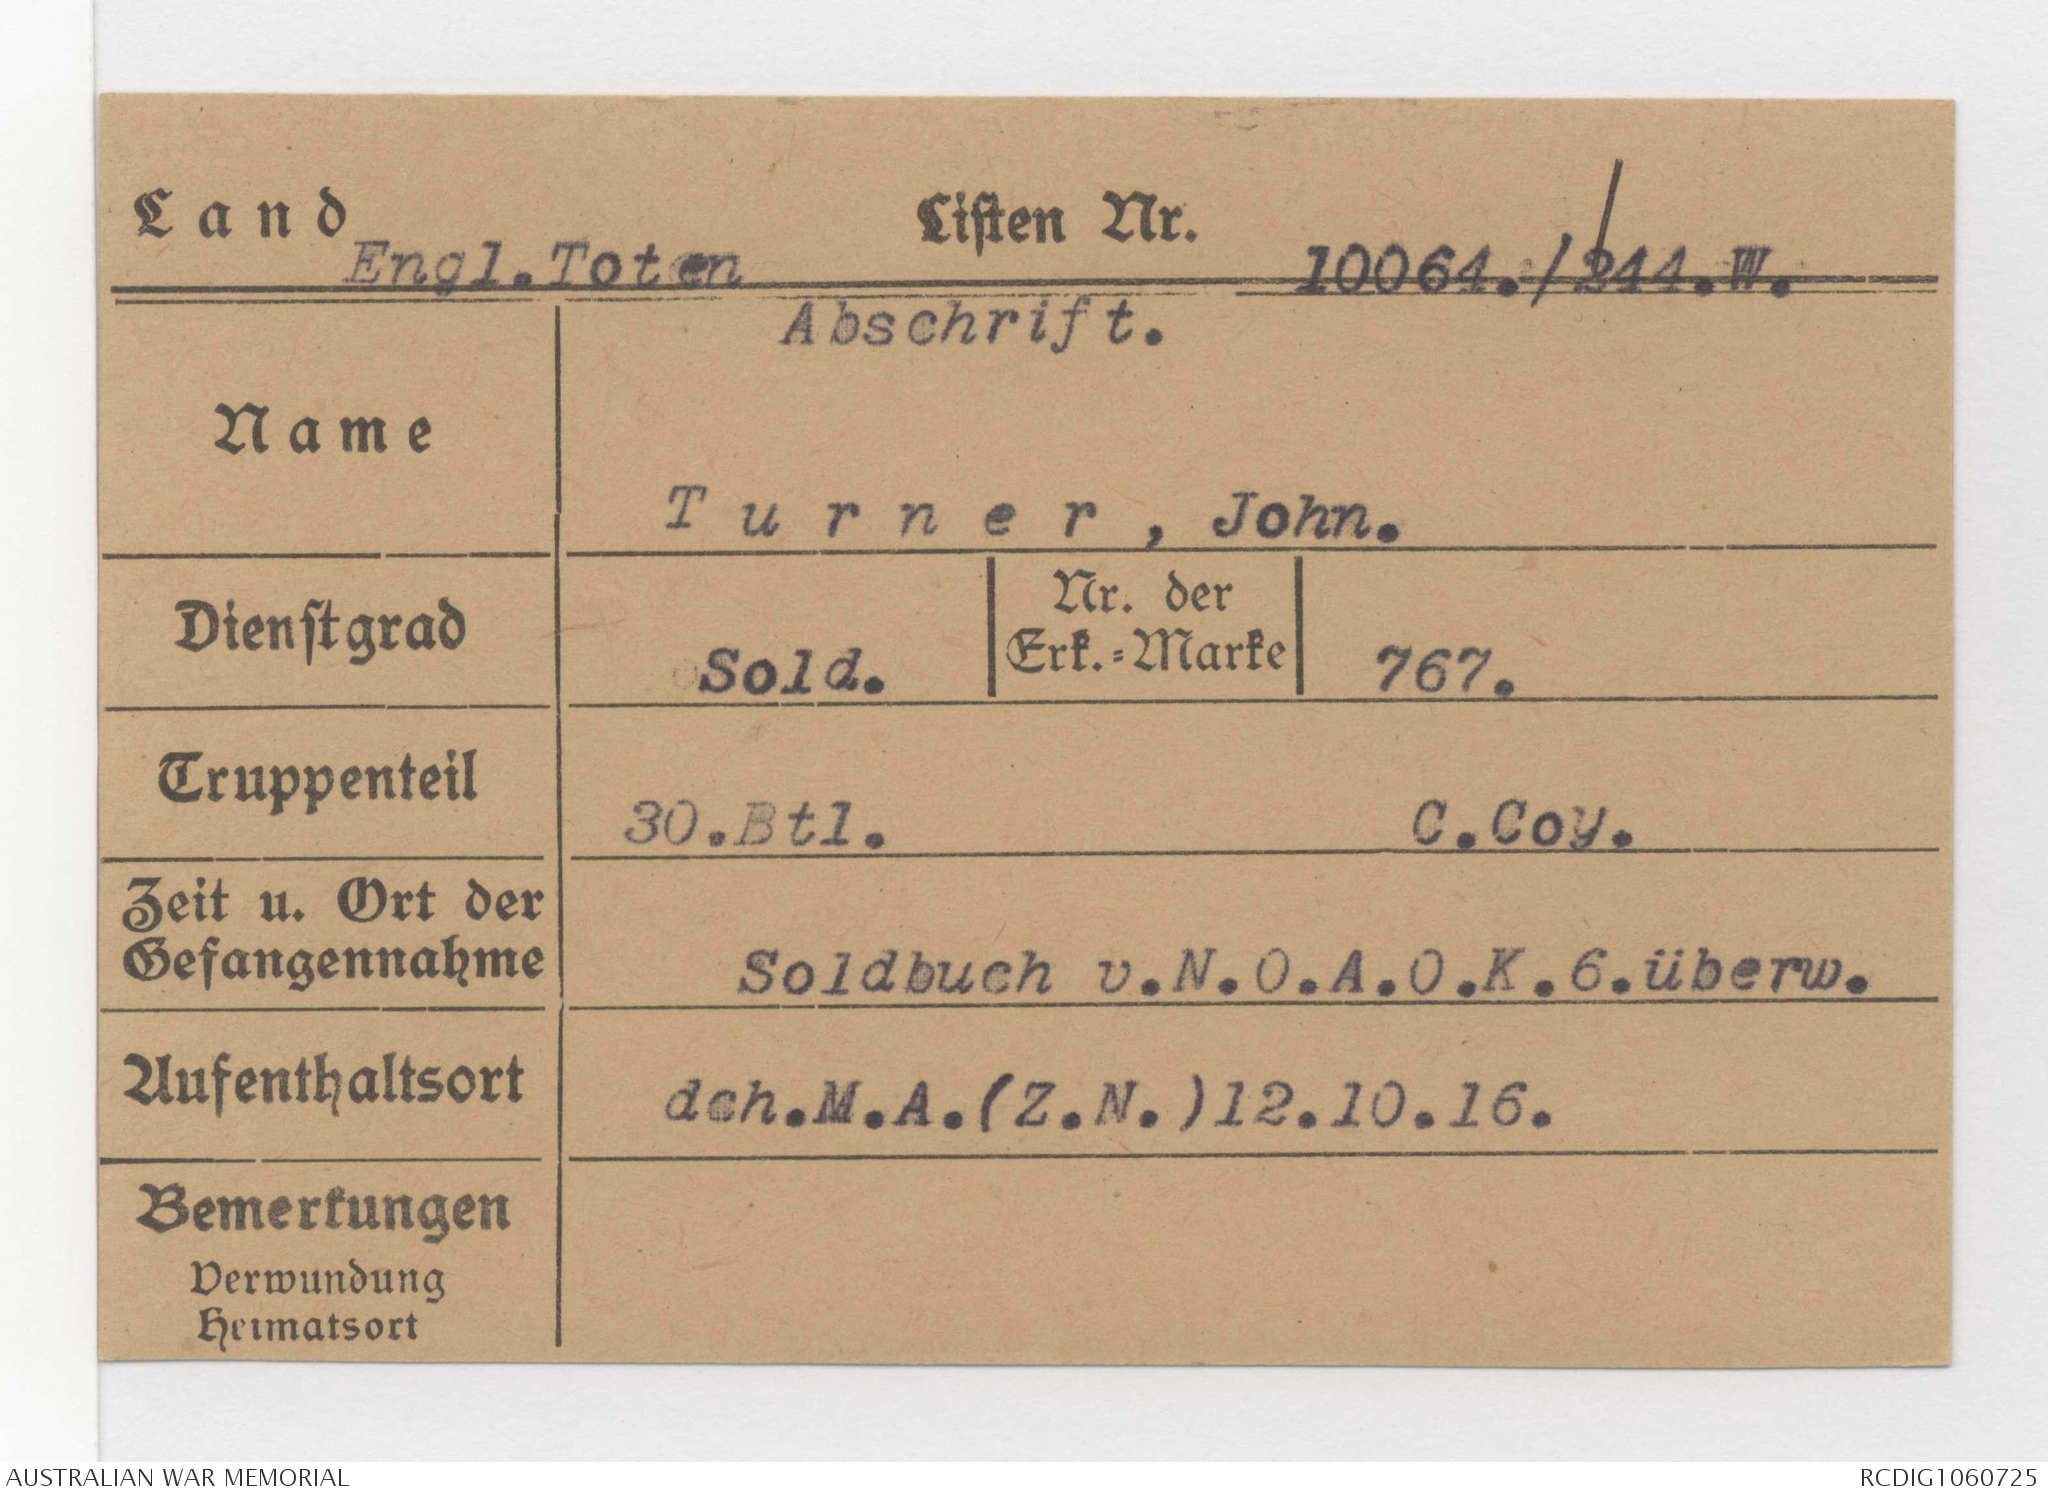 Land Engl.Toten Listen Nr. 10064./244.W.
Abschrift.
Name Turner, John.
Dienstgrad Sold. Nr. der Erk.-Marke 767.
Truppenteil 30.Btl. C.Coy.
Zeit u. Ort der
Gefangennahme Soldbuch v.N.O.A.O.K.6.überw.
Aufenthaltsort dch.M.A.(Z.N.)12.10.16.
Bemerkungen
Verwundung
Heimatsort
AUSTRALIAN WAR MEMORIAL RCDIG1060725